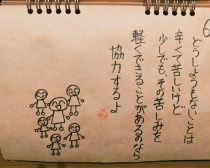 6
どうしようもないことは
辛くて苦しいけど
少しでもその苦しみを
軽くできることがあるのなら
協力するよ